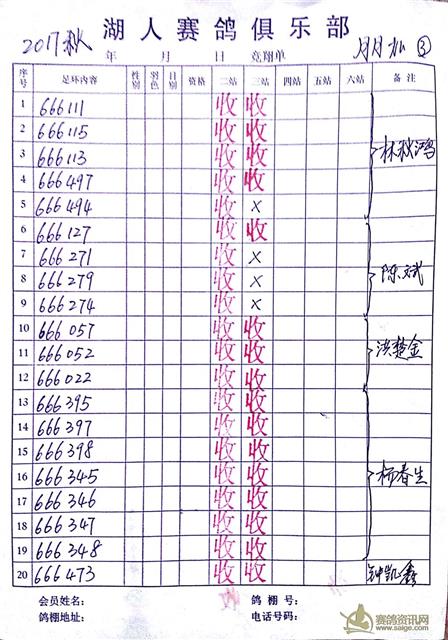 湖人赛鸽俱乐部
2017秋 年 月 日 竞翔单
序号 足环内容 性别 羽色 日别 资格 二站 三站 四站 五站 六站 备注
1 666111 收 收
2 666115 收 收
3 666113 收 收 林秋鸿
4 666497 收 收
5 666494 收 ×
6 666127 收 收
7 666271 收 ×
8 666279 收 × 陈斌
9 666274 收 ×
10 666057 收 收
11 666052 收 收 洪楚金
12 666022 收 收
13 666395 收 收
14 666397 收 收
15 666398 收 收
16 666345 收 收 杨春生
17 666346 收 收
18 666347 收 收
19 666348 收 收
20 666473 收 收 钟凯鑫
会员姓名: 鸽棚号:
鸽棚地址: 电话号码:
赛鸽资讯网
www.saige.com